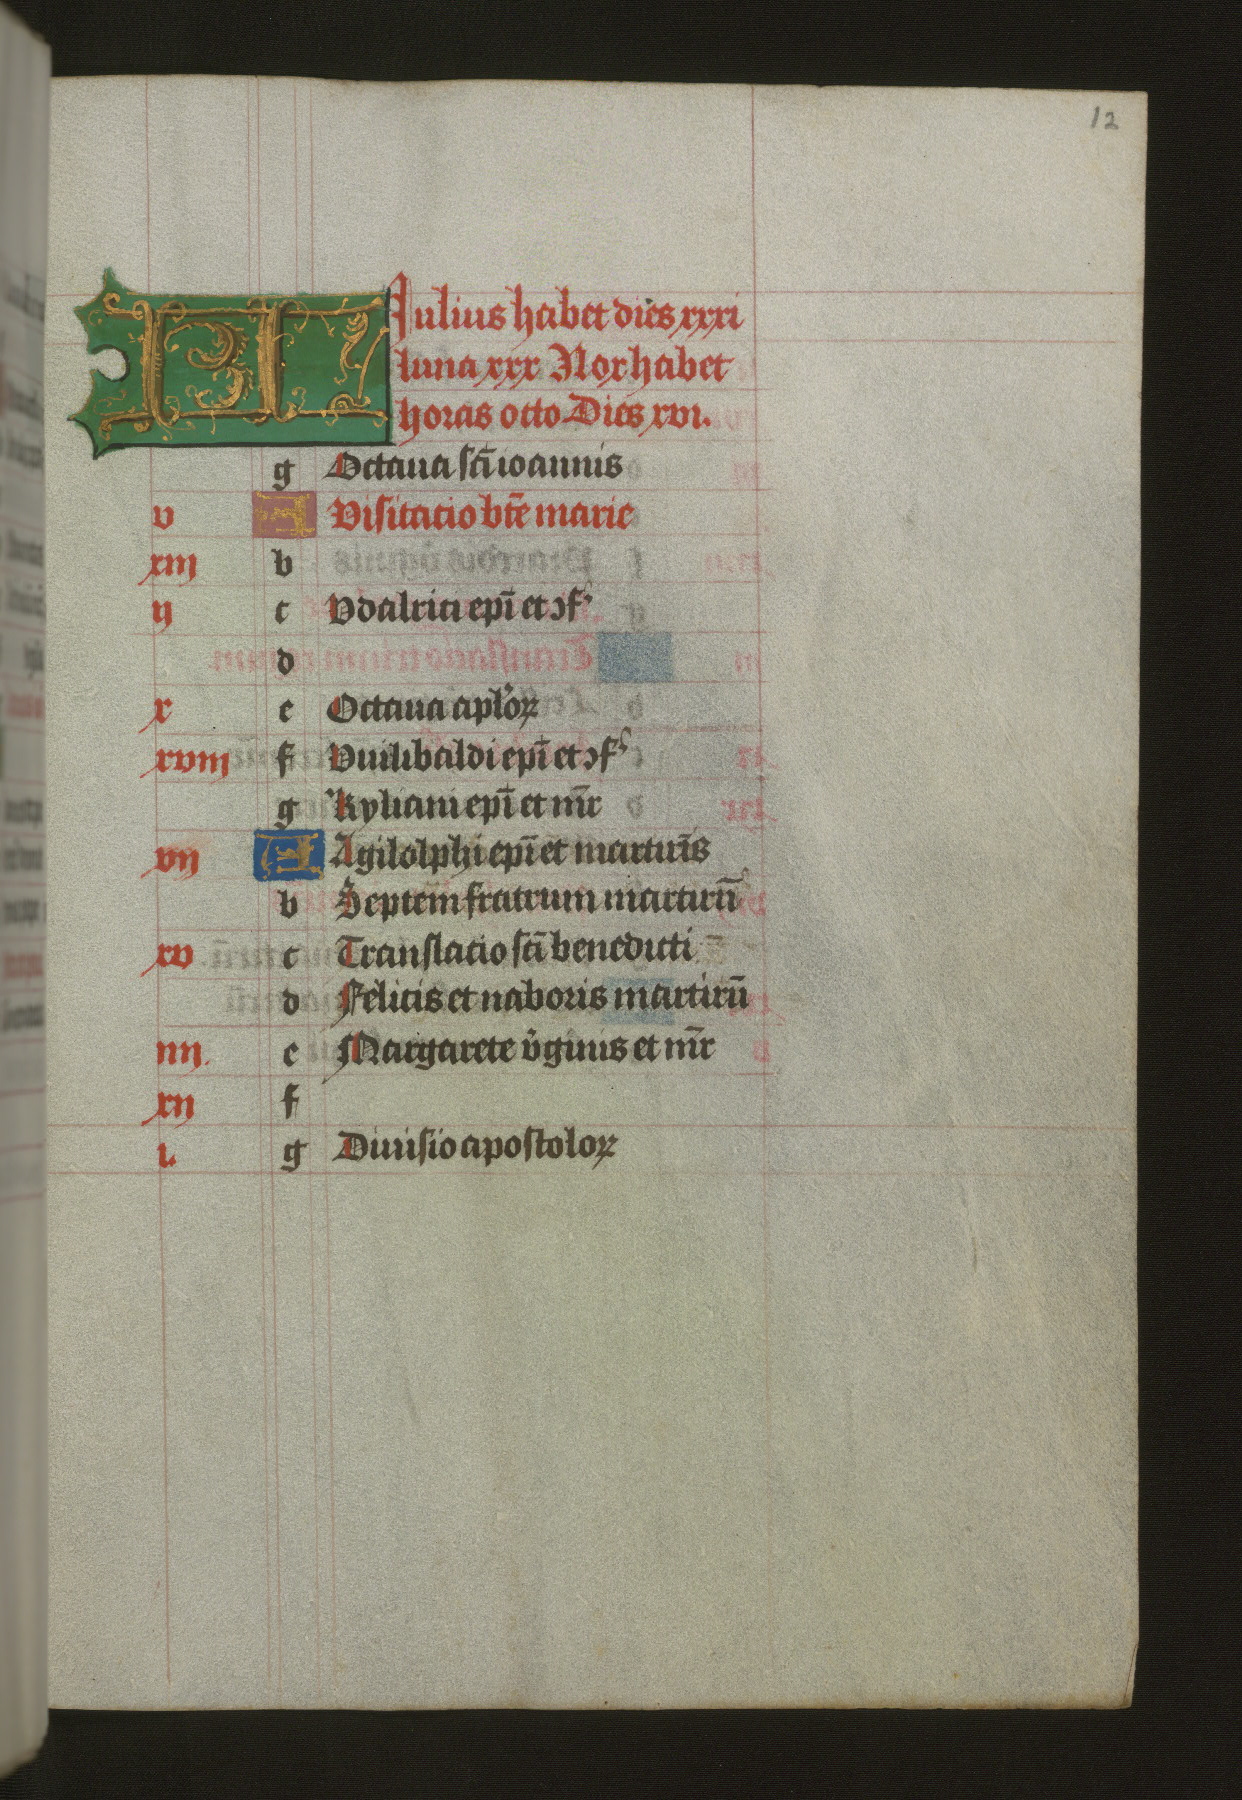 12
KL Iulius habet dies xxxi
luna xxx Nox habet
horas octo Dies xvi.
g Octaua sct̄i ioannis
v A Visitacio bt̄e marie
xiij b
ij c Vdalrici epī et ↄfꝰ
d
x e Octaua aplōꝝ
xviij f Vuilibaldi epī et ↄfꝰ
g Kyliani epī et mr̄
vij A Agilolphi epī et martiris
b Septem fratrum martirū
xv c Translatio sct̄i benedicti
d Felicis et naboris martirū
iiij. e Margarete v̄ginis et mr̄
xij f
i. g Diuisio apostoloꝝ